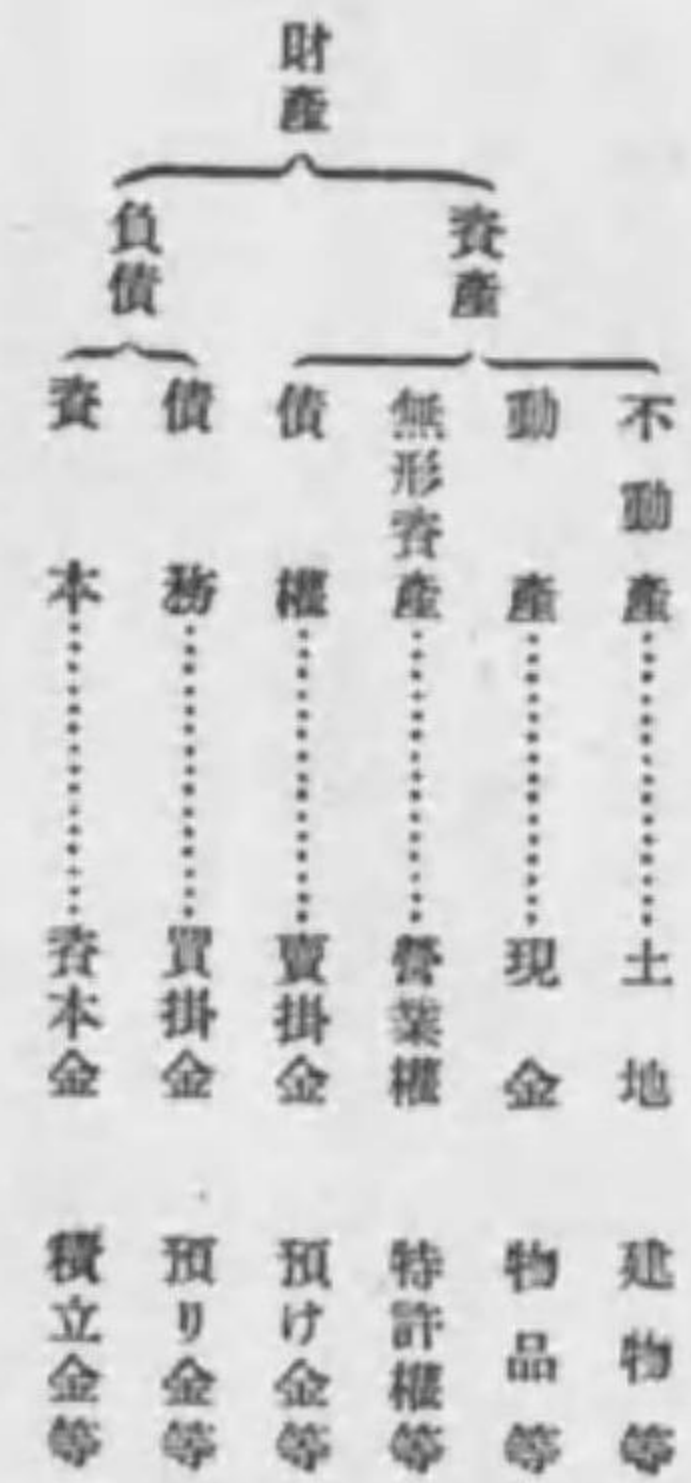 財產
資產
不動產……………土地 建物等
動產……………現金 物品等
無形資產……………營業權 特許權等
債權……………賣掛金 預け金等
負債
債務……………買掛金 預り金等
資本……………資本金 積立金等